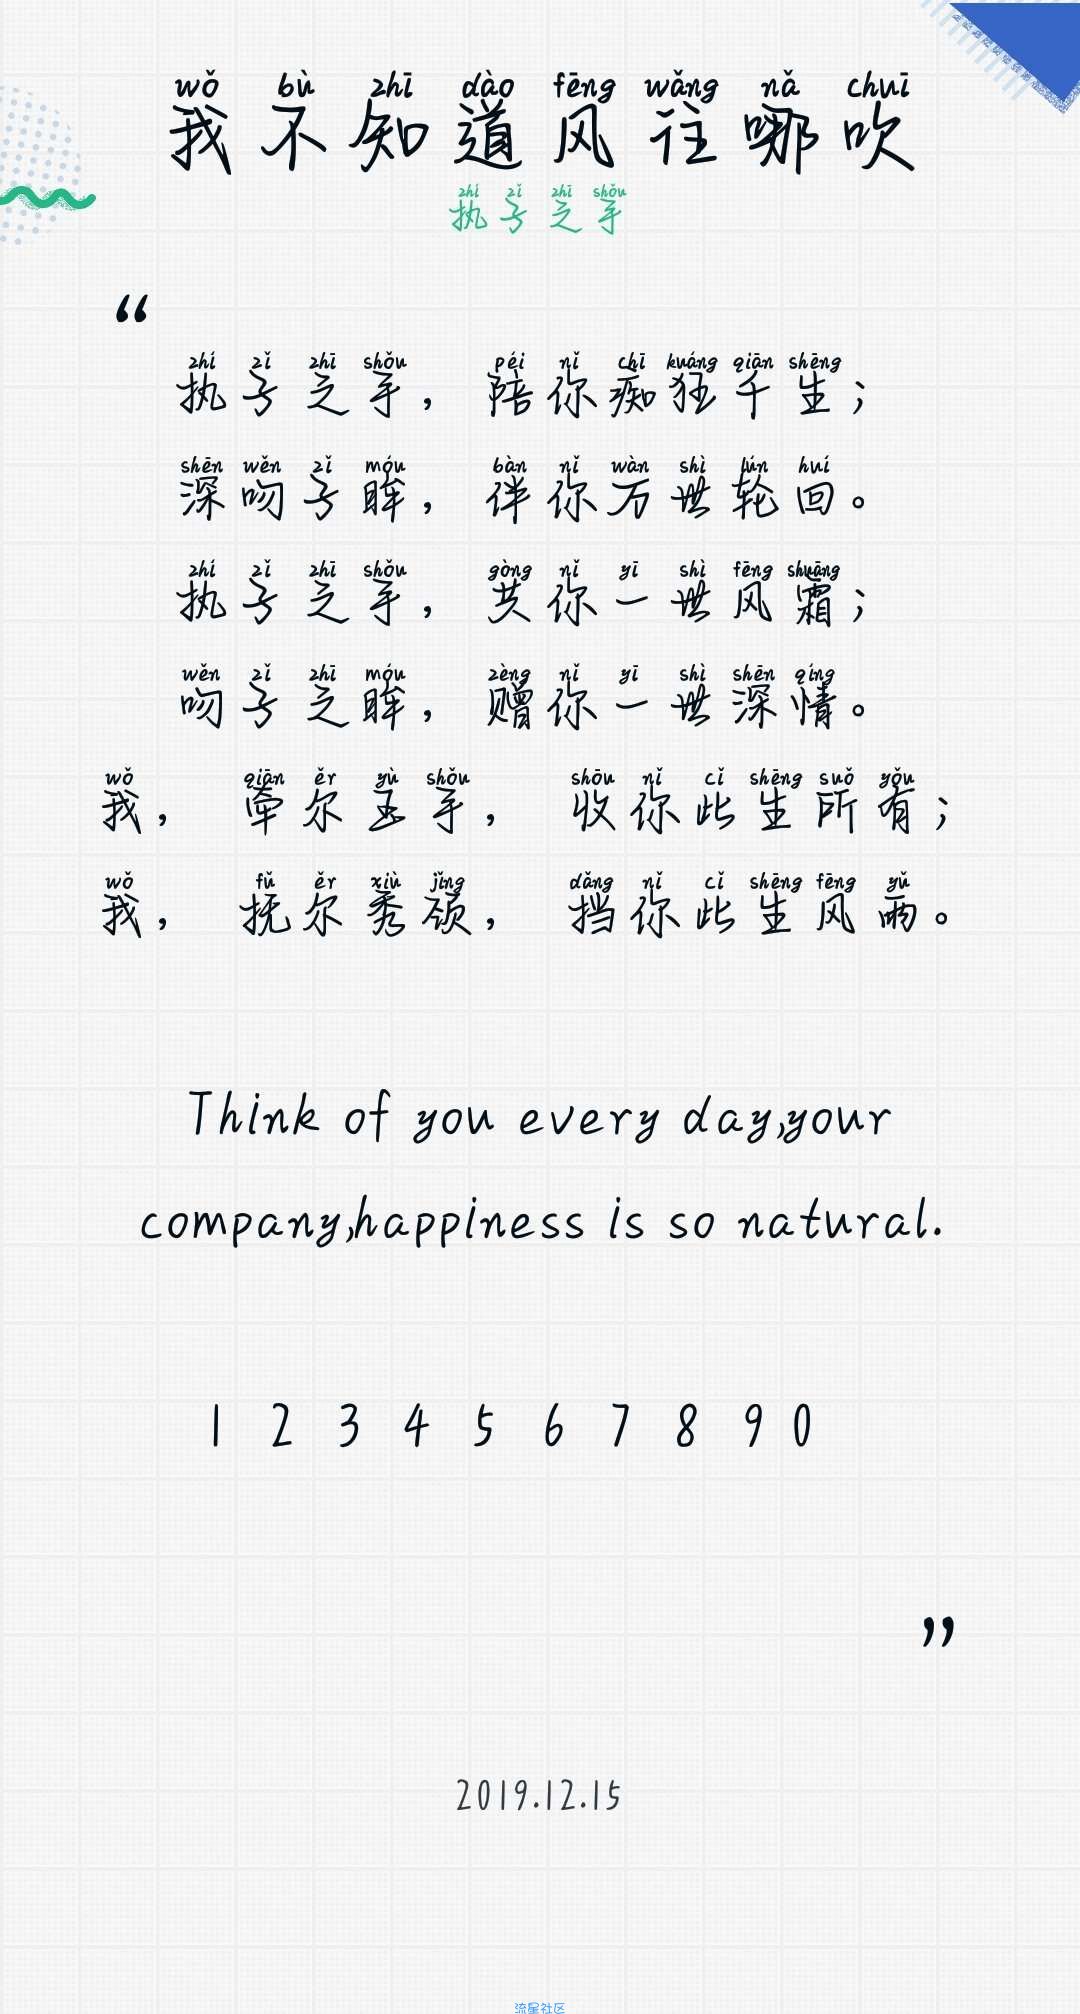 wǒ bù zhī dào fēng wǎng nǎ chuī
我不知道风往哪吹
zhí zǐ zhī shǒu
执子之手
“
zhí zǐ zhī shǒu péi nǐ chī kuáng qiān shēng
执子之手，陪你痴狂千生；
shēn wěn zǐ móu bàn nǐ wàn shì lún huí
深吻子眸，伴你万世轮回。
zhí zǐ zhī shǒu gòng nǐ yī shì fēng shuāng
执子之手，共你一世风霜；
wěn zǐ zhī móu zèng nǐ yī shì shēn qíng
吻子之眸，赠你一世深情。
wǒ qiān ěr yù shǒu shōu nǐ cǐ shēng suǒ yǒu
我，牵尔玉手，收你此生所有；
wǒ fǔ ěr xiù jǐng dǎng nǐ cǐ shēng fēng yǔ
我，抚尔秀颈，挡你此生风雨。
Think of you every day,your
company,happiness is so natural.
1 2 3 4 5 6 7 8 9 0
”
2019.12.15
流星社区